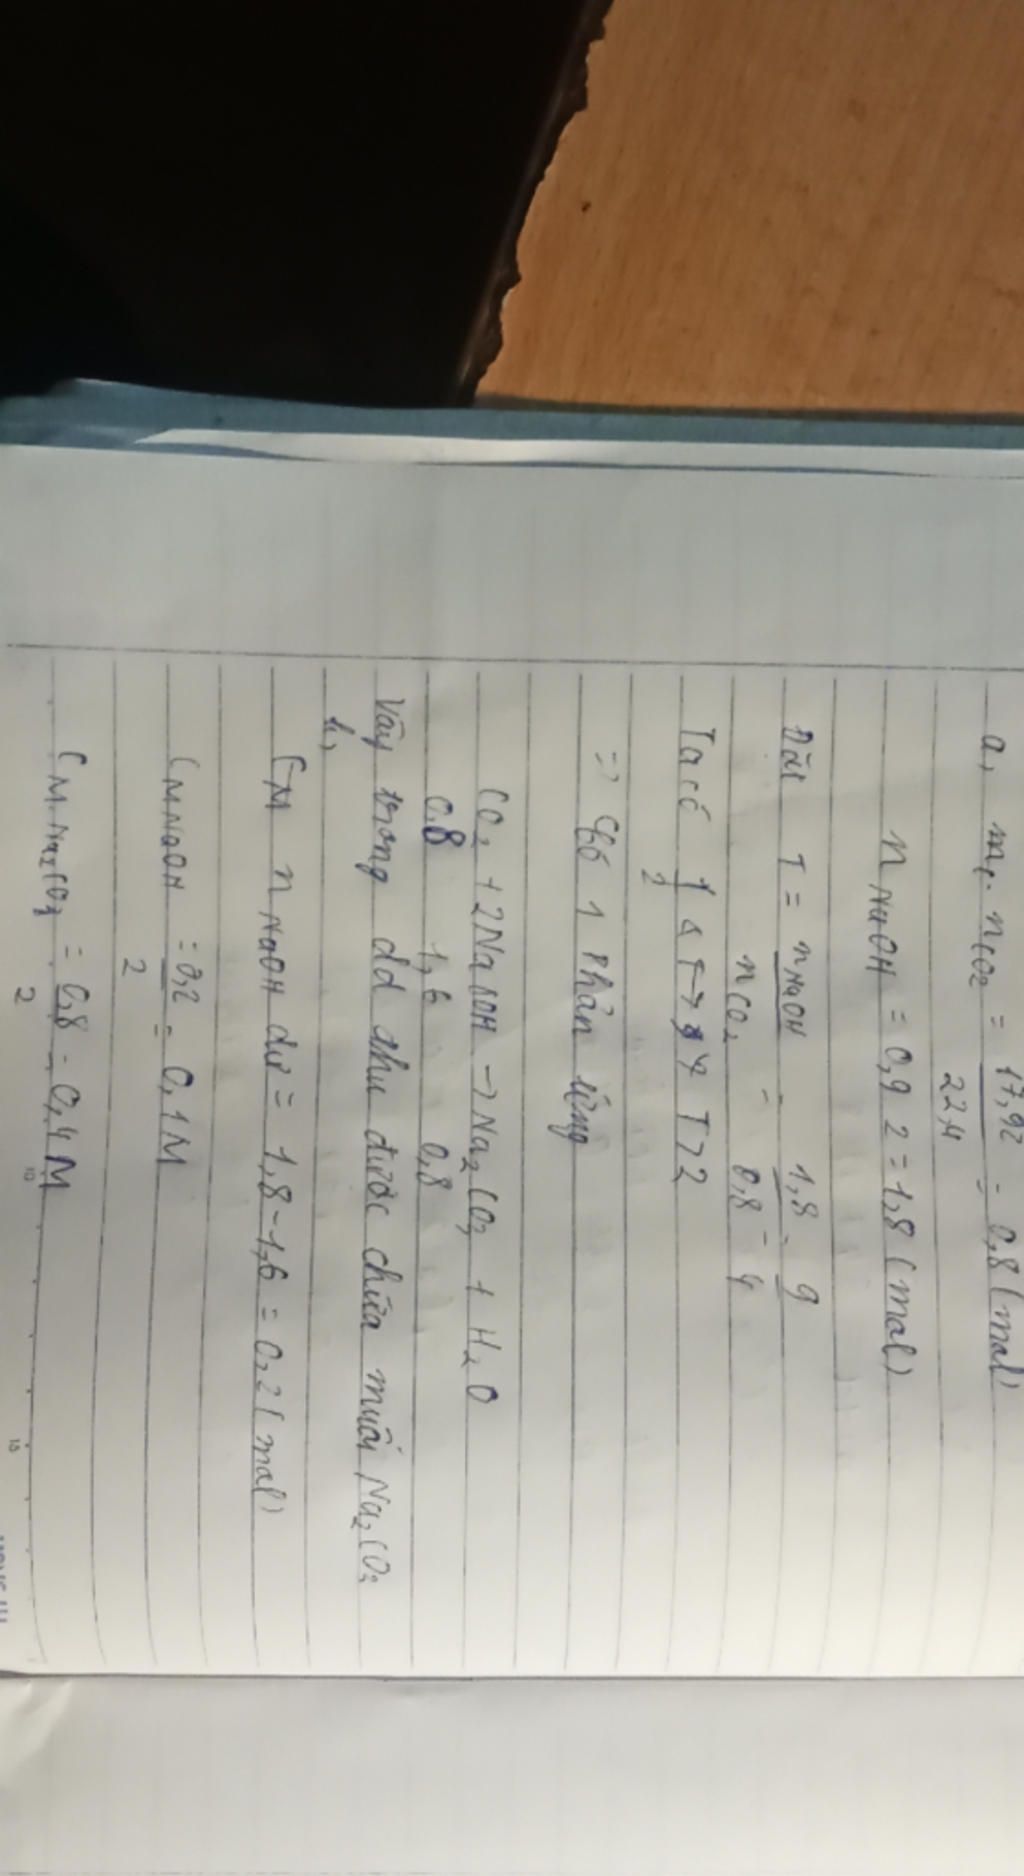 a, nCO₂ = 17,92 / 22,4 = 0,8 (mol)
n NaOH = 0,9 2 = 1,8 (mol)
Đặt T = nNaOH / nCO₂ = 1,8 / 0,8 = 9 / 4
Ta có T > 2
=> 1 phản ứng
CO₂ + 2NaOH -> Na₂CO₃ + H₂O
0,8 1,6 0,8
Vậy trong dd thu được chứa muối Na₂CO₃
b,
CM n NaOH dư = 1,8 - 1,6 = 0,2 (mol)
CM NaOH = 0,2 / 2 = 0,1M
CM Na₂CO₃ = 0,8 / 2 = 0,4M